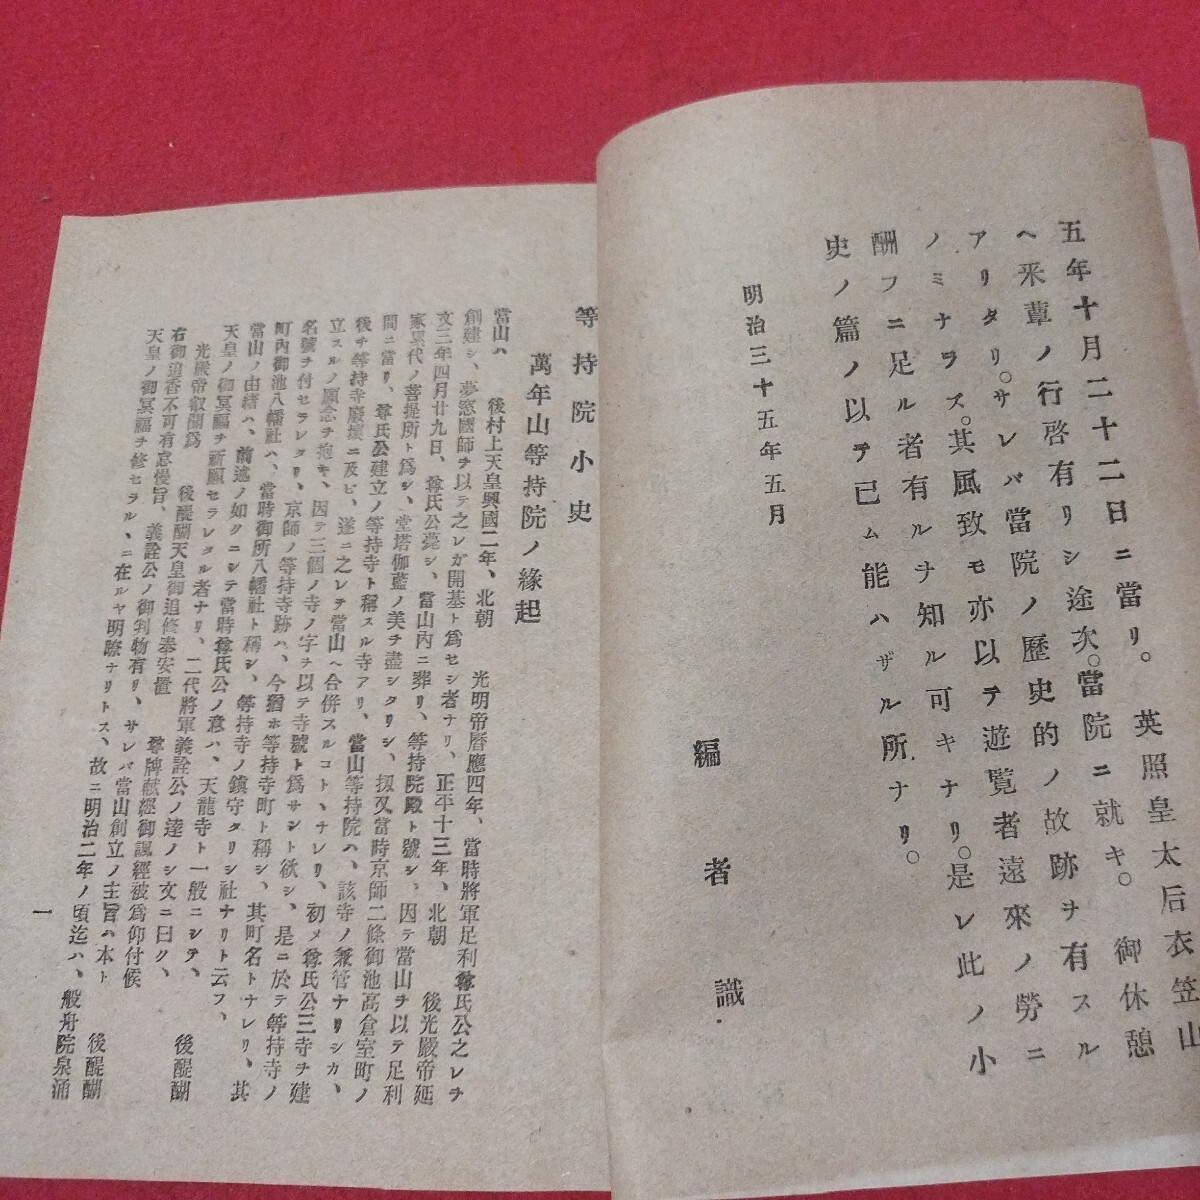 五年十月二十二日ニ當リ。英照皇太后衣笠山
ヘ釆蕈ノ行啓有リシ途次。當院ニ就キ。御休憩
アリタリ。サレバ當院ノ歷史的ノ故跡ヲ有スル
ノミナラズ。其風致モ亦以テ遊覽者遠來ノ勞ニ
酬フニ足ル者有ルヲ知ル可キナリ。是レ此ノ小
史ノ篇ノ以テ已ム能ハザル所ナリ。
明治三十五年五月
編者識
等持院小史
萬年山等持院ノ緣起
當山ハ 後村上天皇興國二年、北朝 光明帝曆應四年、當時將軍足利尊氏公之レヲ
創建シ、夢窓國師ヲ以テ之レガ開基ト爲セシ者ナリ、正平十三年、北朝 後光嚴帝延
文三年四月廿九日、尊氏公薨シ、當山內ニ葬リ、等持院殿ト號シ、因テ當山ヲ以テ足利
家累代ノ菩提所ト爲シ、堂塔伽藍ノ美ヲ盡シタリシ、扨又當時京師二條御池高倉室町ノ
間ニ當リ、尊氏公建立ノ等持寺ト稱スル寺アリ、當山等持院ハ、該寺ノ兼管ナリシカ、
後チ等持寺廢壞ニ及ビ、遂ニ之レヲ當山ヘ合併スルコトヽナレリ、初メ尊氏公三寺ヲ建
立スルノ願念ヲ抱キ、因テ三個ノ寺ノ字ヲ以テ寺號ト爲サント欲シ、是ニ於テ等持寺ノ
名號ヲ付セラレタリ、京師ノ等持寺跡ハ、今猶ホ等持寺町ト稱シ、其町名トナレリ、其
町內御池八幡社ハ、當時御所八幡社ト稱シ、等持寺ノ鎭守タリシ社ナリト云フ、
當山ノ由緖ハ、前述ノ如クニシテ當時尊氏公ノ意ハ、天龍寺ト一般ニシテ、 後醍醐
天皇ノ御冥福ヲ祈願セラレタル者ナリ、二代將軍義詮公ノ達ノシ文ニ曰ク、
光嚴帝叡聞爲 後醍醐天皇御追修奉安置 尊牌獻經御諷經被爲仰付候
右御追香不可有怠慢旨、義詮公ノ御判物有リ、サレバ當山創立ノ主旨ハ本ト 後醍醐
天皇ノ御冥福ヲ修セラルヽニ在ルヤ明瞭ナリトス、故ニ明治二年ノ頃迄ハ、般舟院泉涌
一